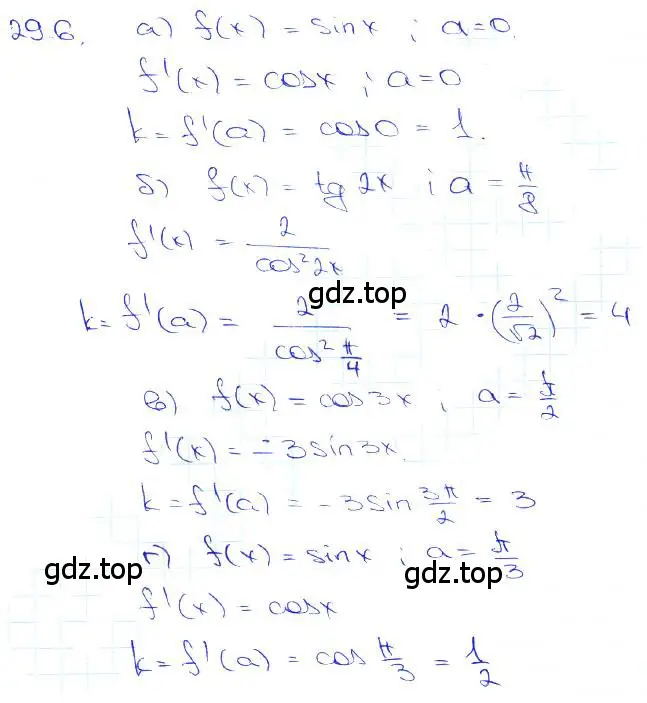 29.6. а) f(x) = sinx ; a=0.
f'(x) = cosx ; a=0
k=f'(a) = cos0 = 1.
б) f(x) = tg 2x ; a = π/8
f'(x) = 2/cos²2x
k=f'(a) = 2/cos² π/4 = 2 · (2/√2)² = 4
gdz.top
в) f(x) = cos3x ; a = π/2
f'(x) = -3sin3x.
k=f'(a) = -3sin 3π/2 = 3
г) f(x) = sinx ; a = π/3
gdz.top
gdz.top
f'(x) = cosx
k=f'(a) = cos π/3 = 1/2